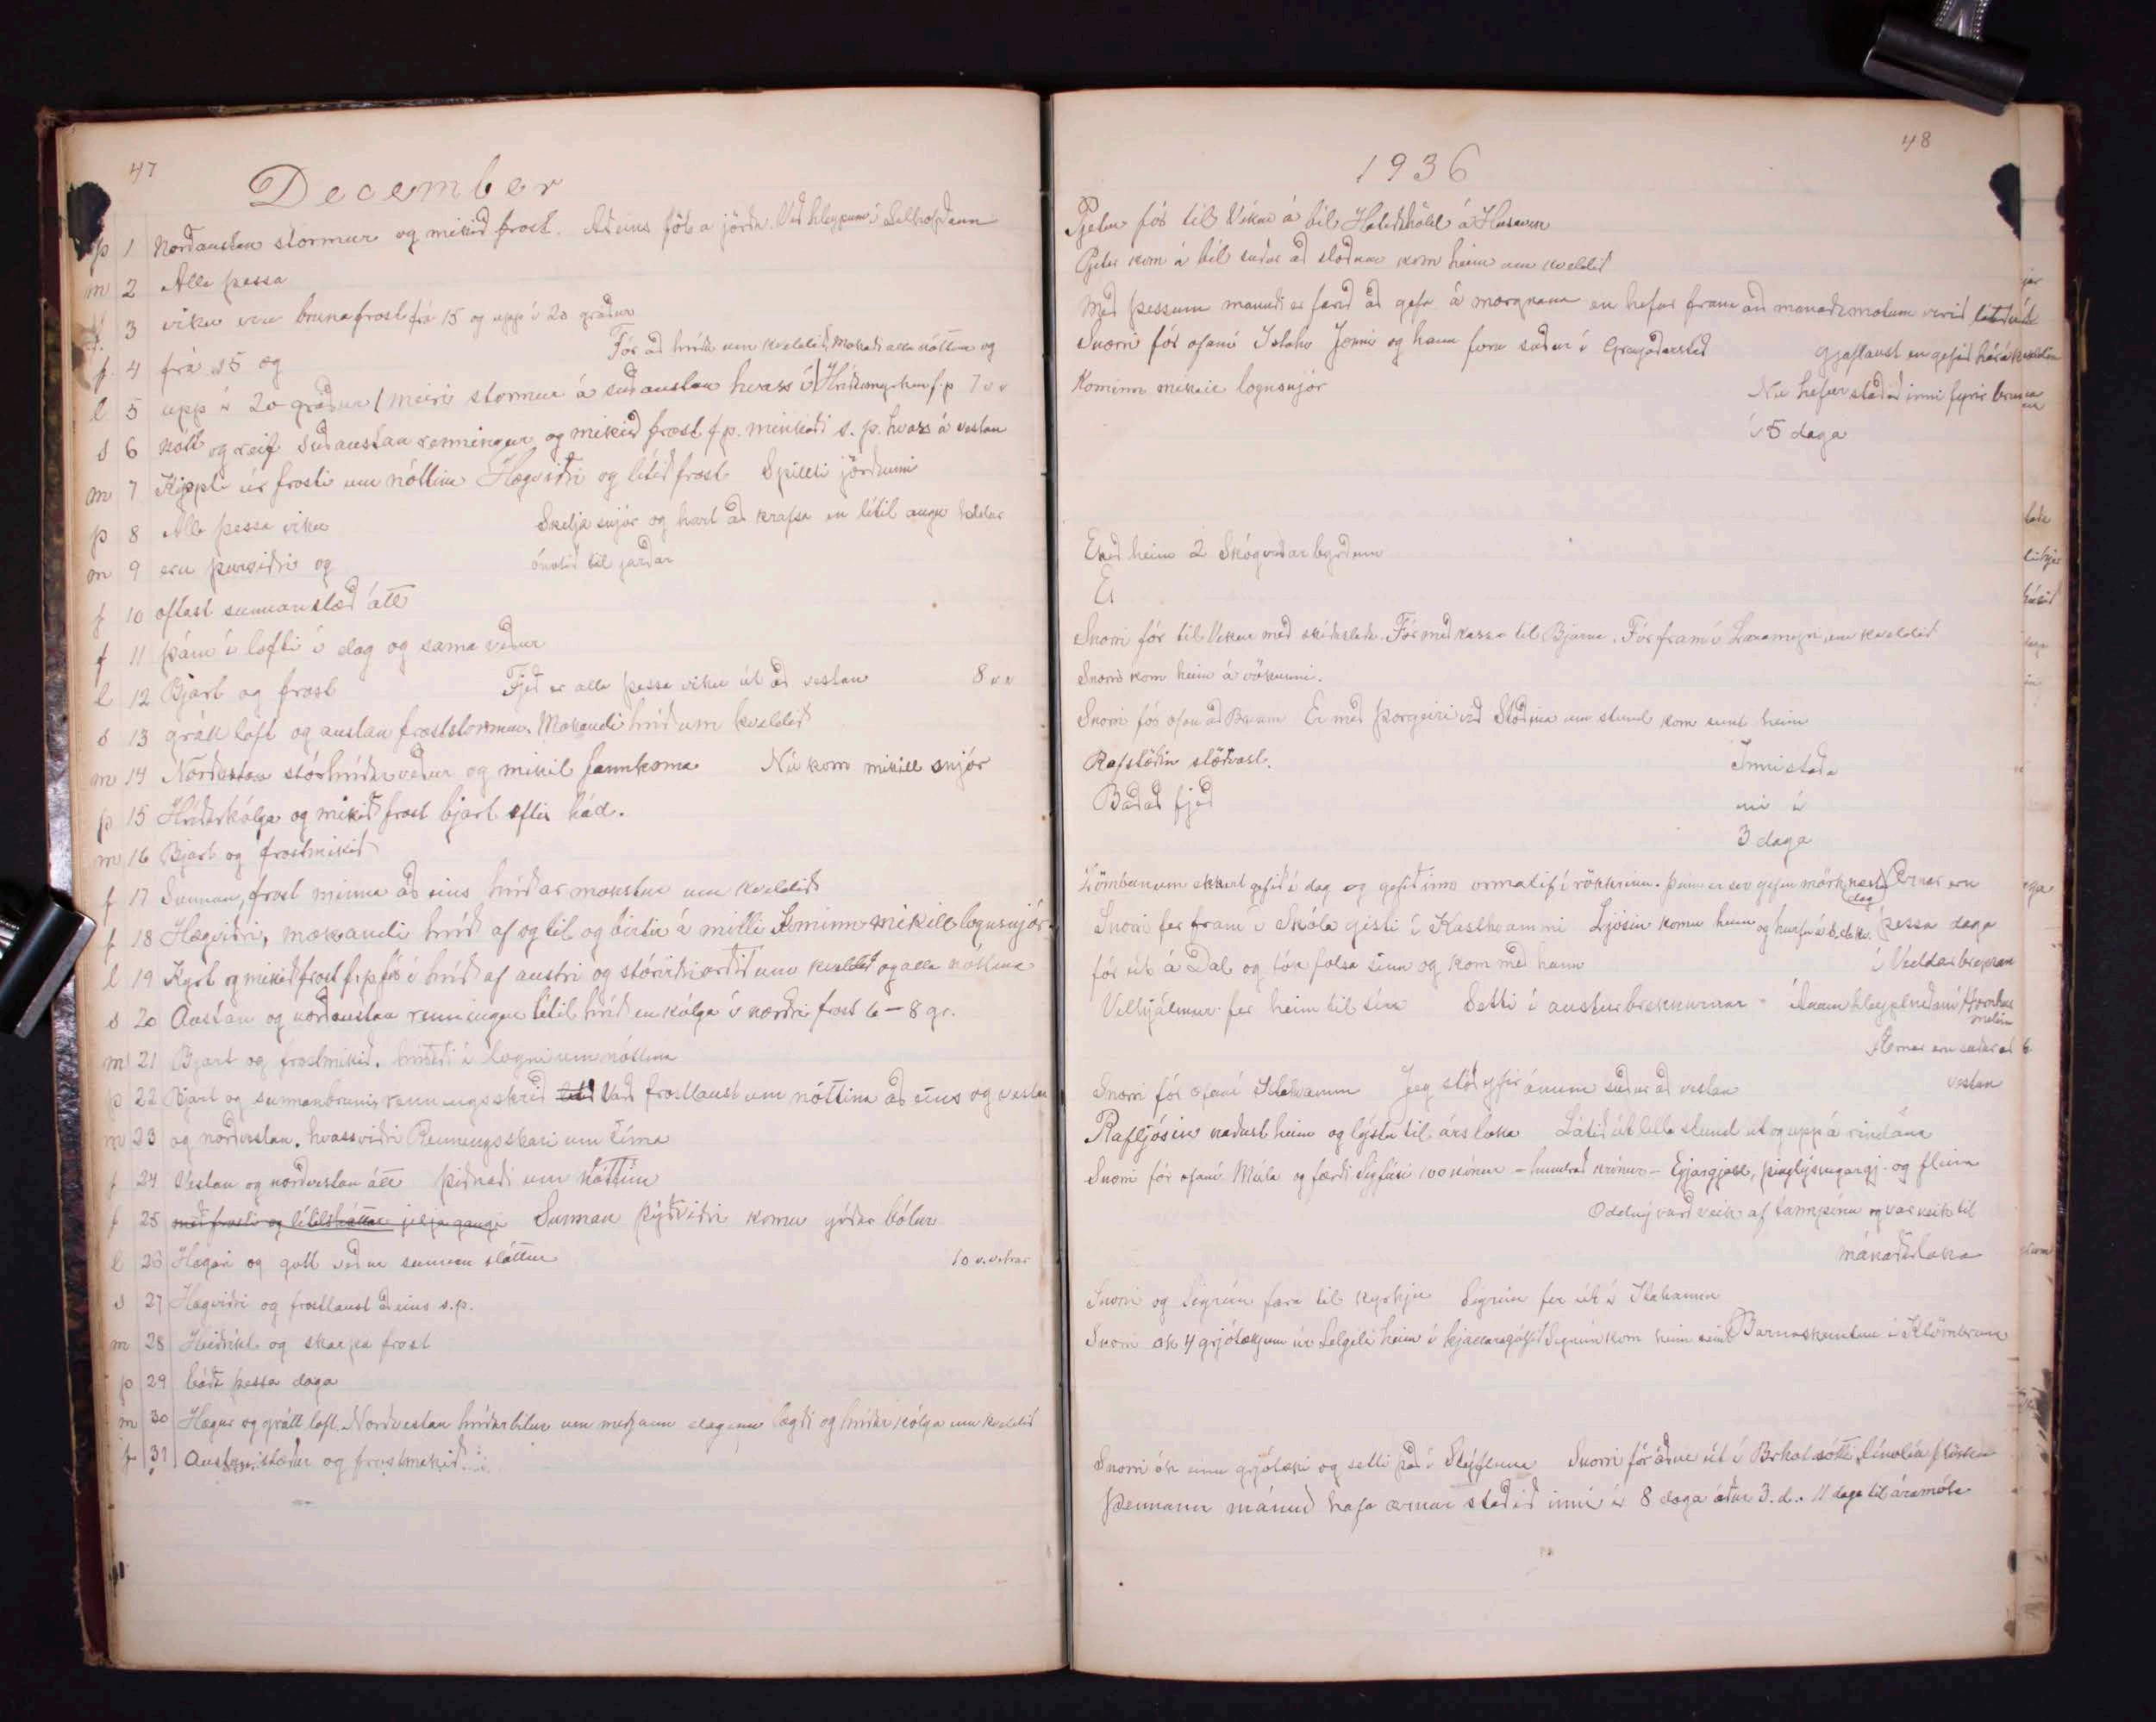 47
December
þ 1 Norðaustan stormur og mikið frost. Aðeins föl a jörðu. Við hleypum í
m 2 Alla þessa
3 viku eru brunafrost frá 15 og upp í 20 gráður
f. 4 frá 15 og
Fór að hríða um kveldið, mokaði alla nóttina og
l 5 upp í 20 gráður / meiri stormur á suðaustan hvass í Hríðarmyrkur f.p 7 v v
s 6 nótt og reif suðaustan renningur og mikið frost f p. minkaði s. p. hvass á vestan
m 7 Kippti úr frosti um nóttina Hægviðri og lítið frost Spillti jörðunni
þ 8 Alla þessa viku Skelja snjór og hart að krafsa en lítil augu heldur
m 9 eru þurviðri og ónotið til jarðar
f 10 oftast sunnanstæð átt
f 11 þám í lofti í dag og sama veður
l 12 Bjart og frost Fjeð er alla þessa viku út að vestan 8 v v
s 13 grátt loft og austan froststormur. Mokandi hríð um kveldið
m 14 stórhríðarveður og mikil fannkoma Nú kom mikill snjór
þ 15 Hríðarkólga og mikið frost bjart eftir hád.
m 16 Bjart og frostmikið
f 17 Sunnan, frost minna að eins hríðar mokstur um kveldið
f 18 Hægviðri, mokandi hríð af og til og birtir á milli Kominn mikill lognsnjór
l 19 Kyrt og mikið frost f.p fór í hríð af austri og stórviðri orðið um kveldið og alla nóttina
s 20 Austan og norðaustan renningur lítil hríð en kólga í norðri frost 6 - 8 gr.
m 21 Bjart og frostmikið. hríðaði í logni um nóttina
þ 22 Bjart og sunnanbruni, renningsskrið Varð frostlaust um nóttina að eins og vestan
m 23 og norðvestan. hvassviðri Renningsskari um tíma
f 24 Vestan og norðvestan átt þiðnaði um nóttina
f 25 með frosti og lítilsháttar jelja gangi Sunnan þýðviðri komu góðar bótur
l 26 Hægari og gott veður sunnan sláttur 10 v. vetrar
s 27 Hægviðri og frostlaust aðeins s.p.
m 28 Heiðríkt og skarpa frost
þ 29 báða þessa daga
m 30 Hægur og grátt loft. Norðvestan hríðarbilur um miðjann daginn lægði og hríðar kólga um kveldið
f 31 Austanstæður og frostmikið
48
1936
Pjetur fór til Víkur á bíl á Húsavík
Pjetur kom á bíl suður að stöðum kom heim um kveldið
Með þessum mánuði er farið að gefa á morgnana en hefur fram að mánaðamótum verið látið út
Snorri fór ofaní Jonni og hann foru suður í Grenjaðarstað gjaflaust en gefið hár á kveldin
Kominn mikill lognsnjór Nú hefur staðið inni fyrir
í 5 daga
Ekið heim 2 Skógviðar byrðum
Er
Snorri fór til Víkur með skíðasleða. Fór með kassa til Bjarna. Fór fram í um kveldið
Snorri kom heim á vökunni.
Snorri fór ofan að Brúum Er með Þorgeiri við Stöðina um stund kom seint heim
Rafstöðin stöðvast. Innistaða
Baðað fjeð nú í
3 daga
Lömbunum ekkert gefið í dag og gefið inn ormalif í rökkrinu. þeim er svo gefin mörk næsta dag Ærnar eru
Snorri fer fram í Skóla gisti í Kasthvammi Ljósin komu heim og hurfu þessa daga
fór út á Dal og tók folsa sinn og kom með hann í
Vilhjálmur fer heim til sín Setti í austurbrekkurnar
Ærnar eru suður að
Snorri fór ofaní Jeg stóð yfir ánum suður að vestan vestan
Rafljósin náðust heim og lýstu til ársloka Látið út litla stund út og upp á rindana
Snorri fór ofaní Múla og færði Sigfúsi 100 krónur - hundrað krónur - Eyjargjald, þinglýsingargj. og fleira
Oddný varð veik af tannpínu og var veik til
mánaðarloka
Snorri og Sigrún fara til kyrkju Sigrún fer út í
Snorri ók 4 grjótækjum úr Selgili heim í kjallaragólfið Sigrún kom heim seint Barnaskemtun í Klömbrum
Snorri ók einu grjótæki og setti það í Stýfluna Snorri fór áður út í sótti línolíu flösku
Þennann mánuð hafa ærnar staðið inni í 8 daga áður 3. d. . 11 daga til áramóta